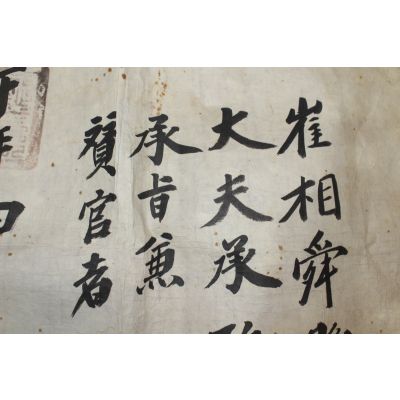 崔相舜
大夫承
承旨兼
贊官者
十年